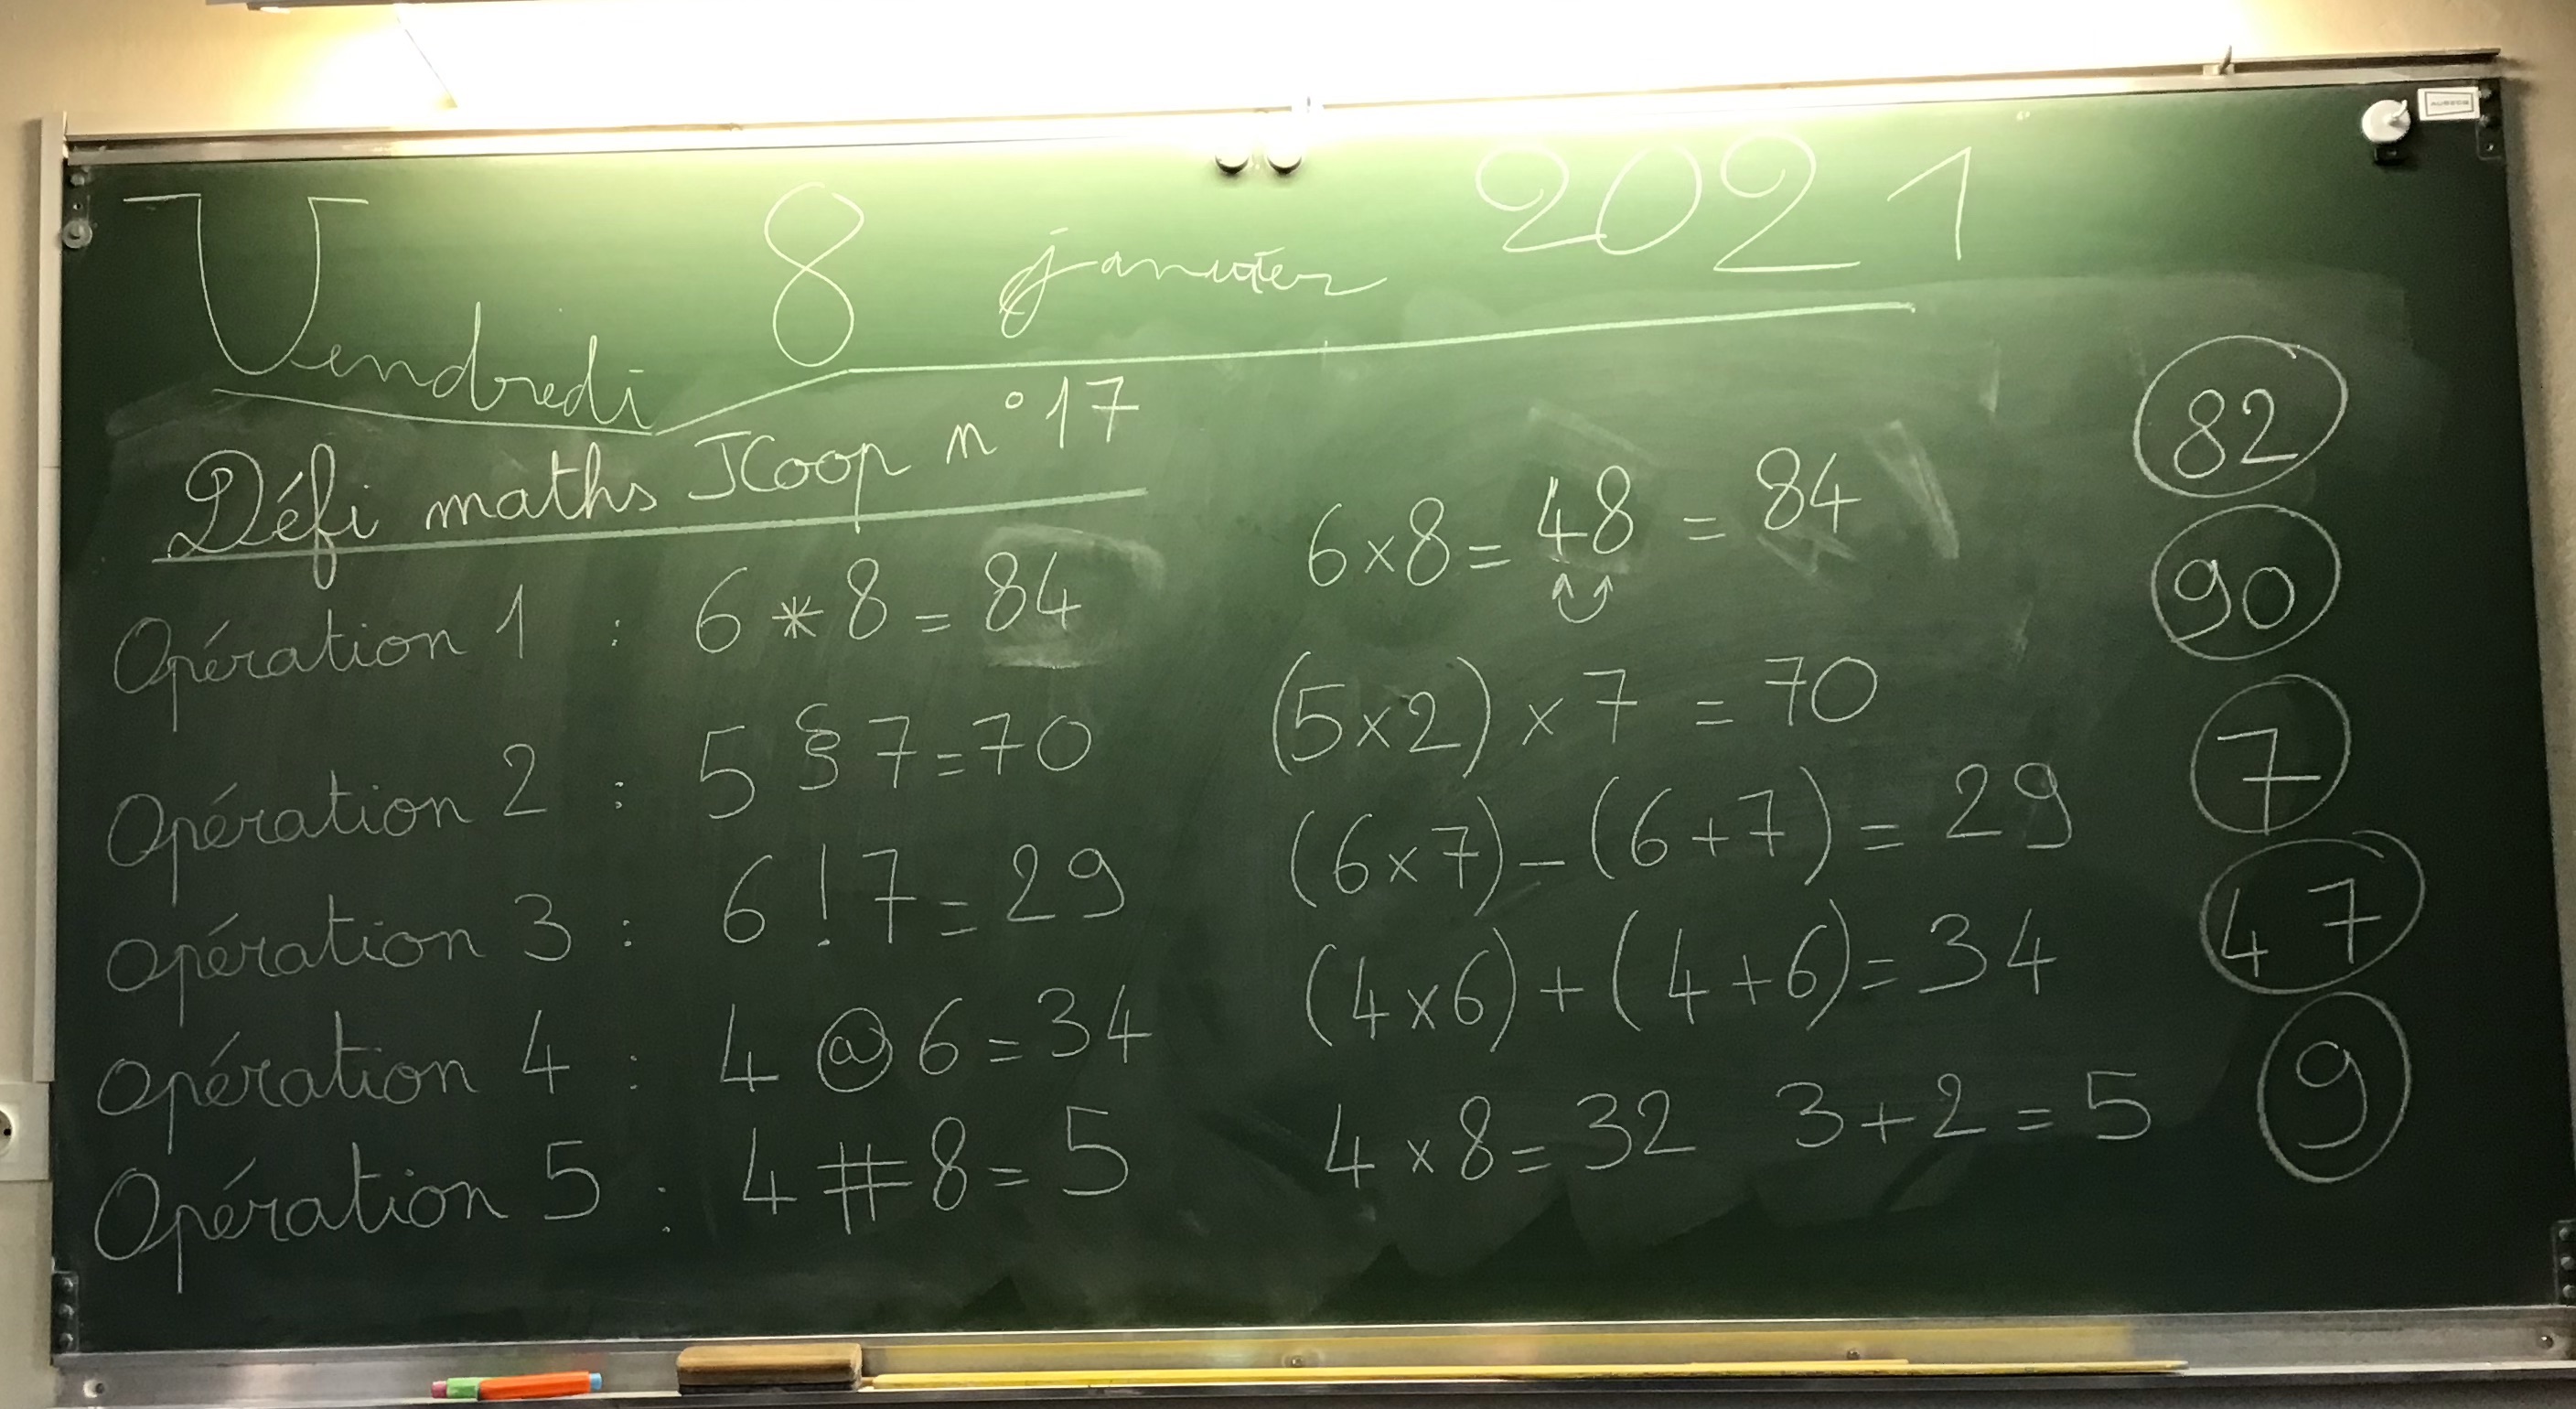 Vendredi 8 janvier 2021
Défi maths JCoop n°17
Opération 1 : 6 * 8 = 84 6 x 8 = 48 = 84 82
Opération 2 : 5 § 7 = 70 (5 x 2) x 7 = 70 90
Opération 3 : 6 ! 7 = 29 (6 x 7) - (6 + 7) = 29 7
Opération 4 : 4 @ 6 = 34 (4 x 6) + (4 + 6) = 34 47
Opération 5 : 4 # 8 = 5 4 x 8 = 32 3 + 2 = 5 9